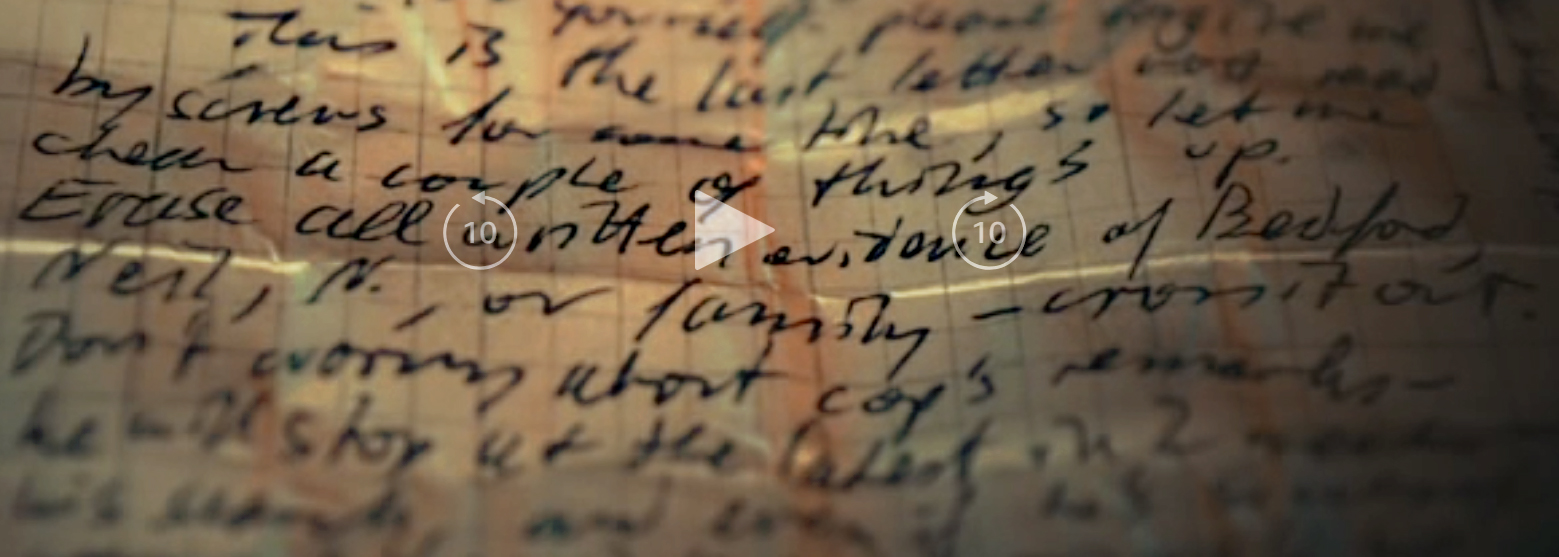 yourself, please forgive me
This is the last letter not read
by screws for some time, so let me
clear a couple of things up.
Erase all written evidence of Bedford,
Neil, N., or family – cross it out.
Don't worry about cop's remarks –
he will stop at the latest in 2
and
10 10